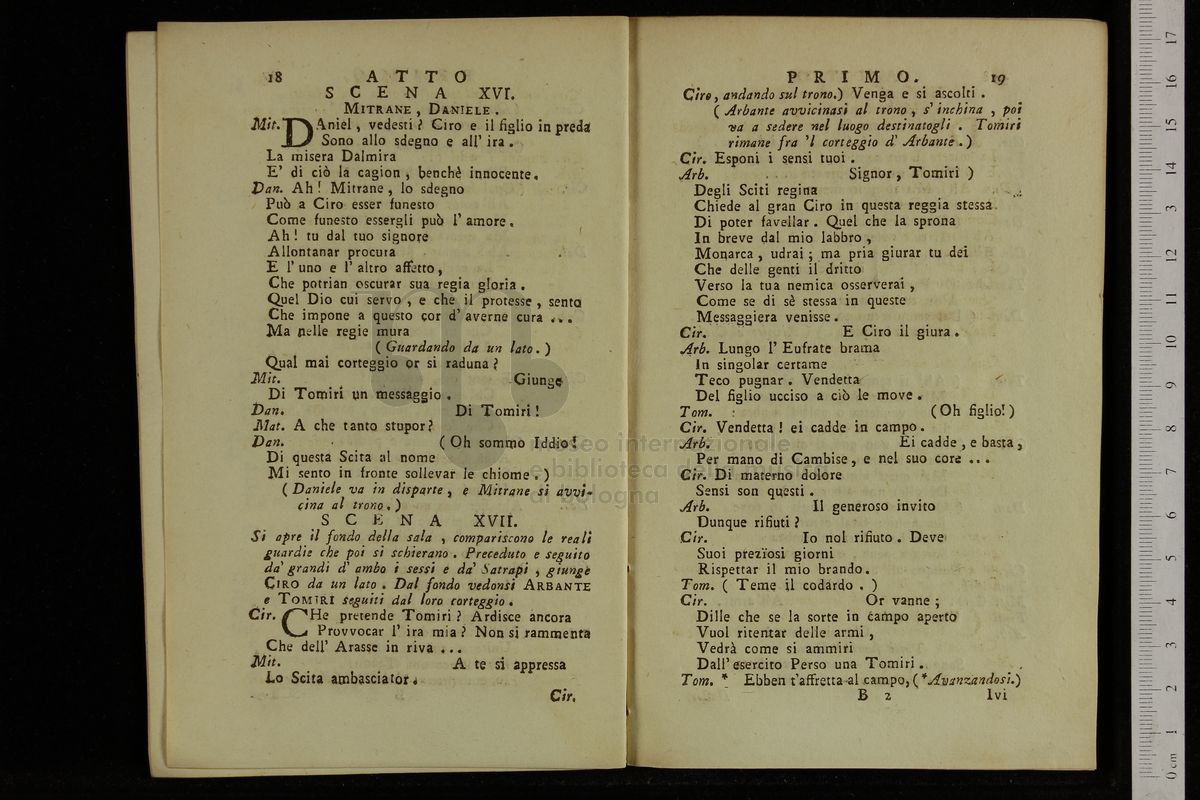 18 ATTO
SCENA XVI.
MITRANE, DANIELE.
Mit. DAniel, vedesti? Ciro e il figlio in preda
Sono allo sdegno e all' ira.
La misera Dalmira
E' di ciò la cagion, benchè innocente.
Dan. Ah! Mitrane, lo sdegno
Può a Ciro esser funesto
Come funesto essergli può l' amore.
Ah! tu dal tuo signore
Allontanar procura
E l' uno e l' altro affetto,
Che potrian oscurar sua regia gloria.
Quel Dio cui servo, e che il protesse, sento
Che impone a questo cor d' averne cura ...
Ma nelle regie mura
(Guardando da un lato.)
Qual mai corteggio or si raduna?
Mit. Giunge
Di Tomiri un messaggio.
Dan. Di Tomiri!
Mat. A che tanto stupor?
Dan. (Oh sommo Iddio!
Di questa Scita al nome
Mi sento in fronte sollevar le chiome.)
(Daniele va in disparte, e Mitrane si avvi-
cina al trono.)
SCENA XVII.
Si apre il fondo della sala, compariscono le reali
guardie che poi si schierano. Preceduto e seguito
da' grandi d' ambo i sessi e da' Satrapi, giunge
CIRO da un lato. Dal fondo vedonsi ARBANTE
e TOMIRI seguiti dal loro corteggio.
Cir. CHe pretende Tomiri? Ardisce ancora
Provvocar l' ira mia? Non si rammenta
Che dell' Arasse in riva ...
Mit. A te si appressa
Lo Scita ambasciator.
Cir.
PRIMO. 19
Ciro, andando sul trono.) Venga e si ascolti.
(Arbante avvicinasi al trono, s' inchina, poi
va a sedere nel luogo destinatogli. Tomiri
rimane fra 'l corteggio d' Arbante.)
Cir. Esponi i sensi tuoi.
Arb. Signor, Tomiri )
Degli Sciti regina
Chiede al gran Ciro in questa reggia stessa
Di poter favellar. Quel che la sprona
In breve dal mio labbro,
Monarca, udrai; ma pria giurar tu dei
Che delle genti il dritto
Verso la tua nemica osserverai,
Come se di sè stessa in queste
Messaggiera venisse.
Cir. E Ciro il giura.
Arb. Lungo l' Eufrate brama
In singolar certame
Teco pugnar. Vendetta
Del figlio ucciso a ciò le move.
Tom. : (Oh figlio!)
Cir. Vendetta! ei cadde in campo.
Arb. Ei cadde, e basta,
Per mano di Cambise, e nel suo core ...
Cir. Di materno dolore
Sensi son questi.
Arb. Il generoso invito
Dunque rifiuti?
Cir. Io nol rifiuto. Deve
Suoi prezïosi giorni
Rispettar il mio brando.
Tom. (Teme il codardo.)
Cir. Or vanne;
Dille che se la sorte in campo aperto
Vuol ritentar delle armi,
Vedrà come si ammiri
Dall' esercito Perso una Tomiri.
Tom. * Ebben t'affretta al campo, (*Avanzandosi.)
B 2 Ivi
museo internazionale
e biblioteca della musica
di bologna
17
16
15
14
13
12
11
10
9
8
7
6
5
4
3
2
1
0 cm